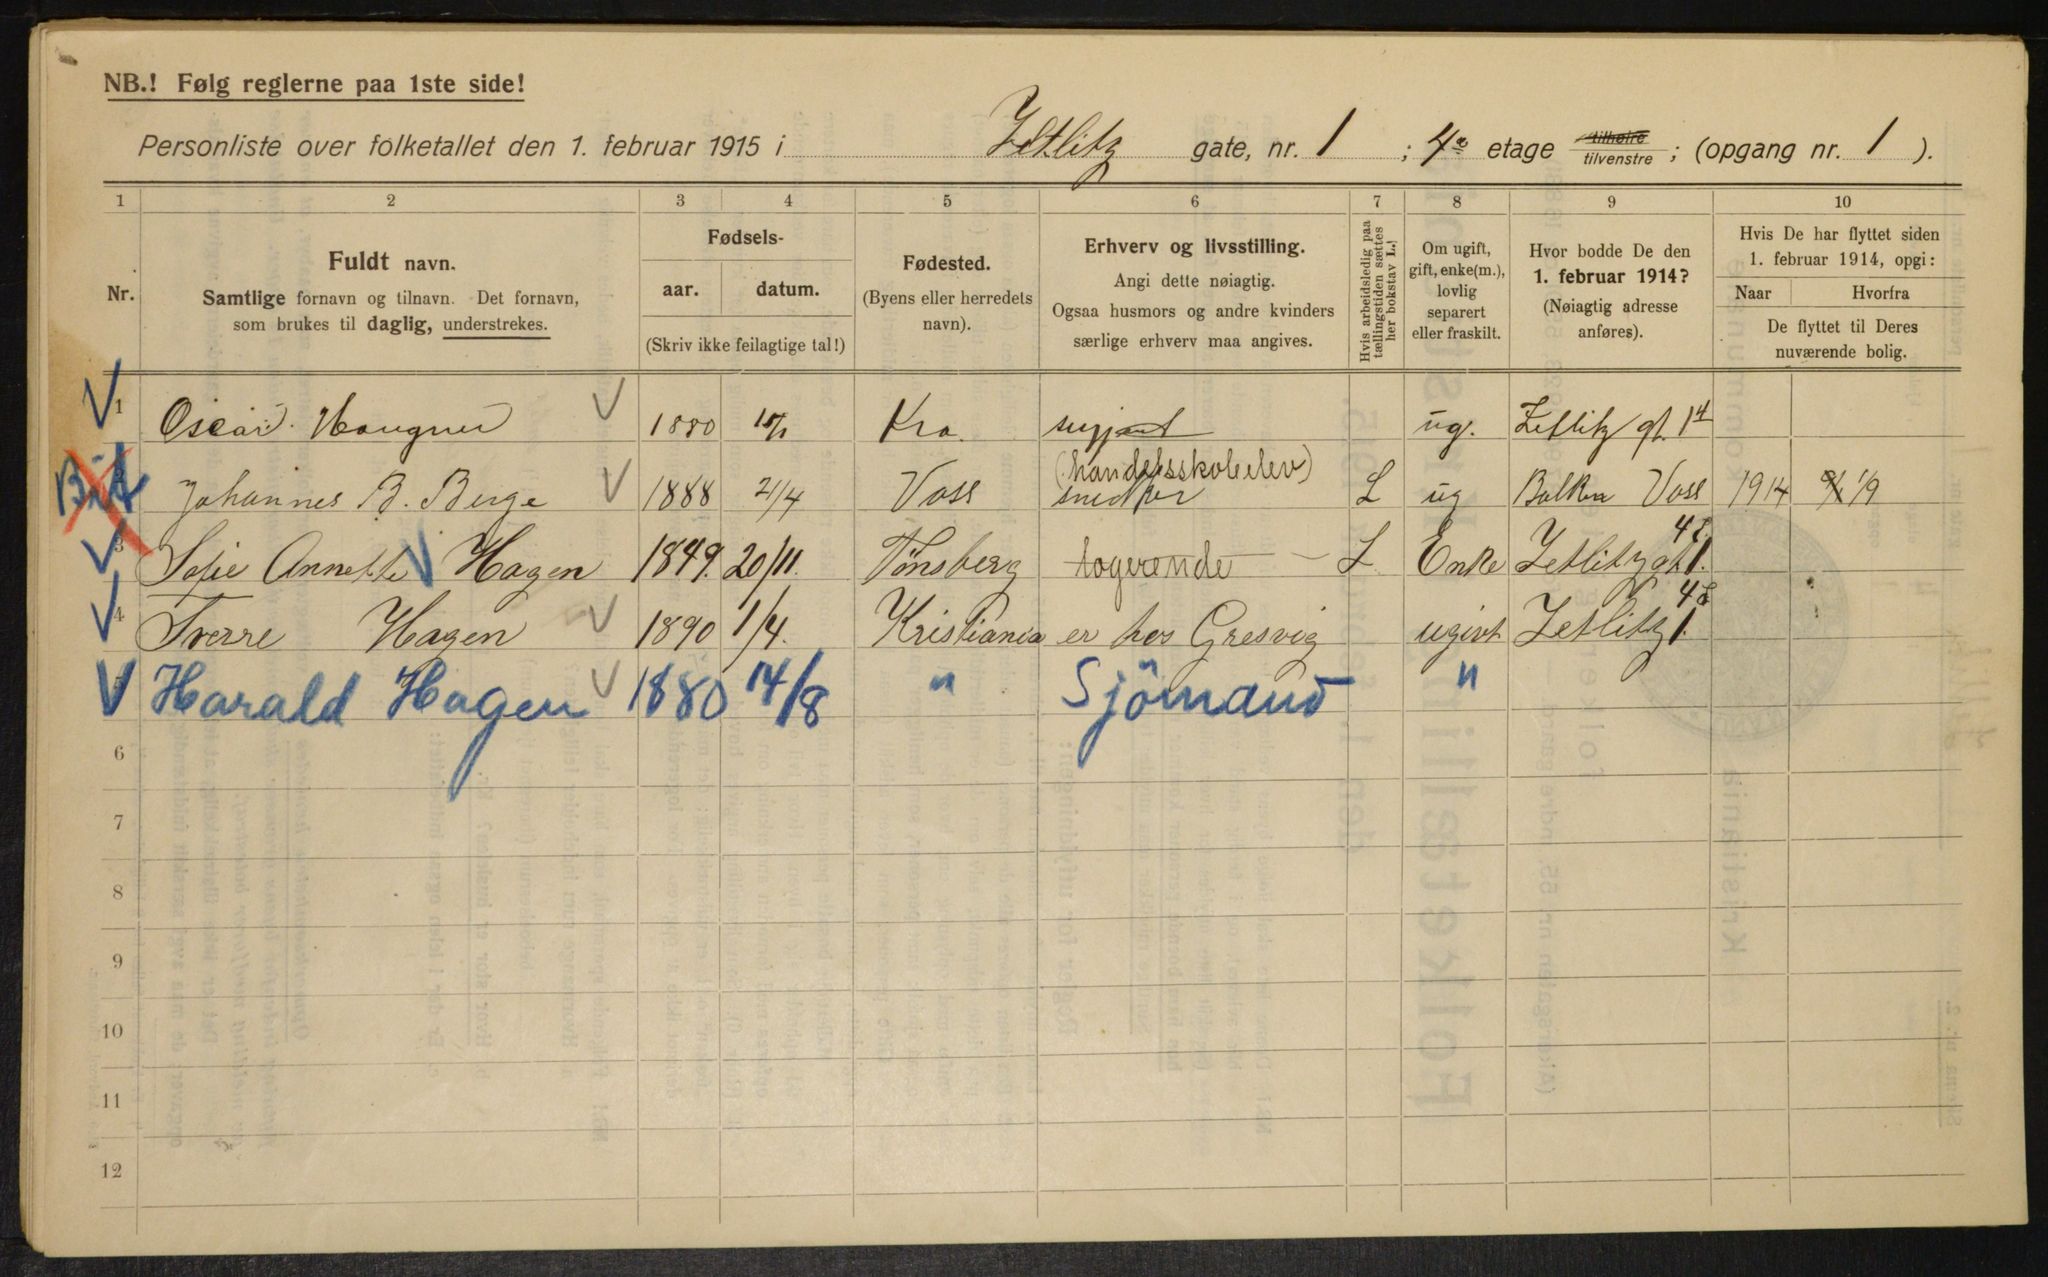 NB.! Følg reglerne paa 1ste side!
Personliste over folketallet den 1. februar 1915 i Zetlitz gate, nr. 1 ; 4de etage tilhøire tilvenstre ; (opgang nr. 1 ).
1 2 3 4 5 6 7 8 9 10
Nr.
Fuldt navn.
Samtlige fornavn og tilnavn. Det fornavn,
som brukes til daglig, understrekes.
Fødsels-
aar. datum.
(Skriv ikke feilagtige tal!)
Fødested.
(Byens eller herredets
navn).
Erhverv og livsstilling.
Angi dette nøiagtig.
Ogsaa husmors og andre kvinders
særlige erhverv maa angives.
Hvis arbeidsledig paa
tællingstiden sættes
her bokstav L.!
Om ugift,
gift, enke(m.),
lovlig
separert
eller fraskilt.
Hvor bodde De den
1. februar 1914?
(Nøiagtig adresse
anføres).
Hvis De har flyttet siden
1. februar 1914, opgi:
Naar Hvorfra
De flyttet til Deres
nuværende bolig.
1 Oscar Haugner 1880 Kra. ug. Zetlitz gt. 1
(handelsskoleelev)
2 Johannes B. Berge 1888 21/4 Voss snedker L ug Voss 1914 1/9
3 Sofie Annette Hagen 1849. 20/11. Tønsberg logerende L Enke Zetlitz gt 1.
4 Sverre Hagen 1890 1/4. Kristiania er hos Gresvig ugivt Zetlitz 1.
5 Harald Hagen 1880 14/8 " Sjömand "
6
7
8
9
10
11
12